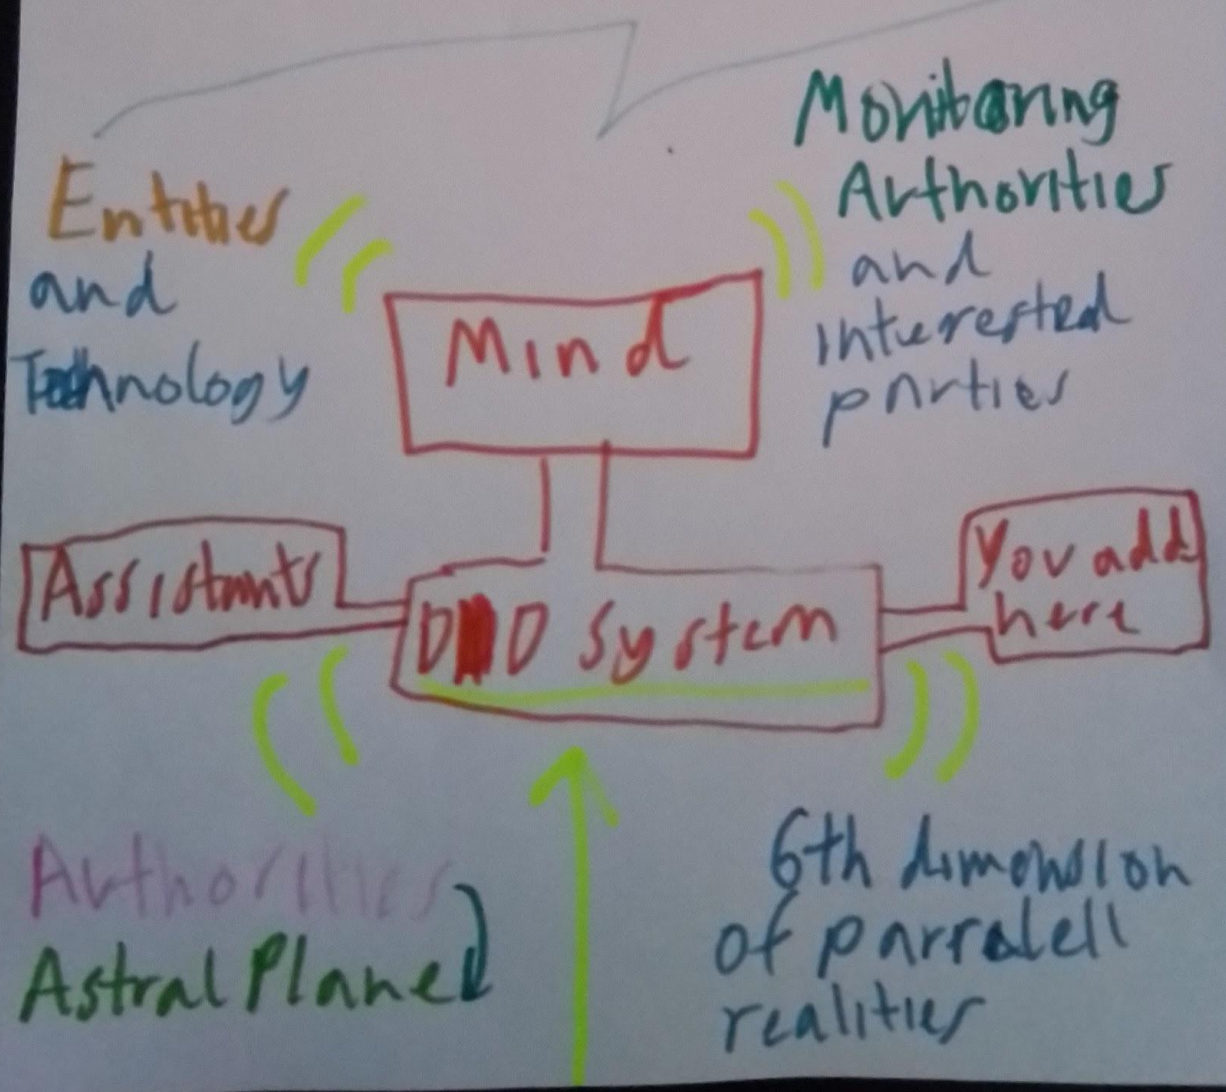 Entities
and
Technology
Monitoring
Authorities
and
interested
parties
Mind
Assistants
D D System
You add
here
Authorities
Astral Plane
6th dimension
of parralell
realities